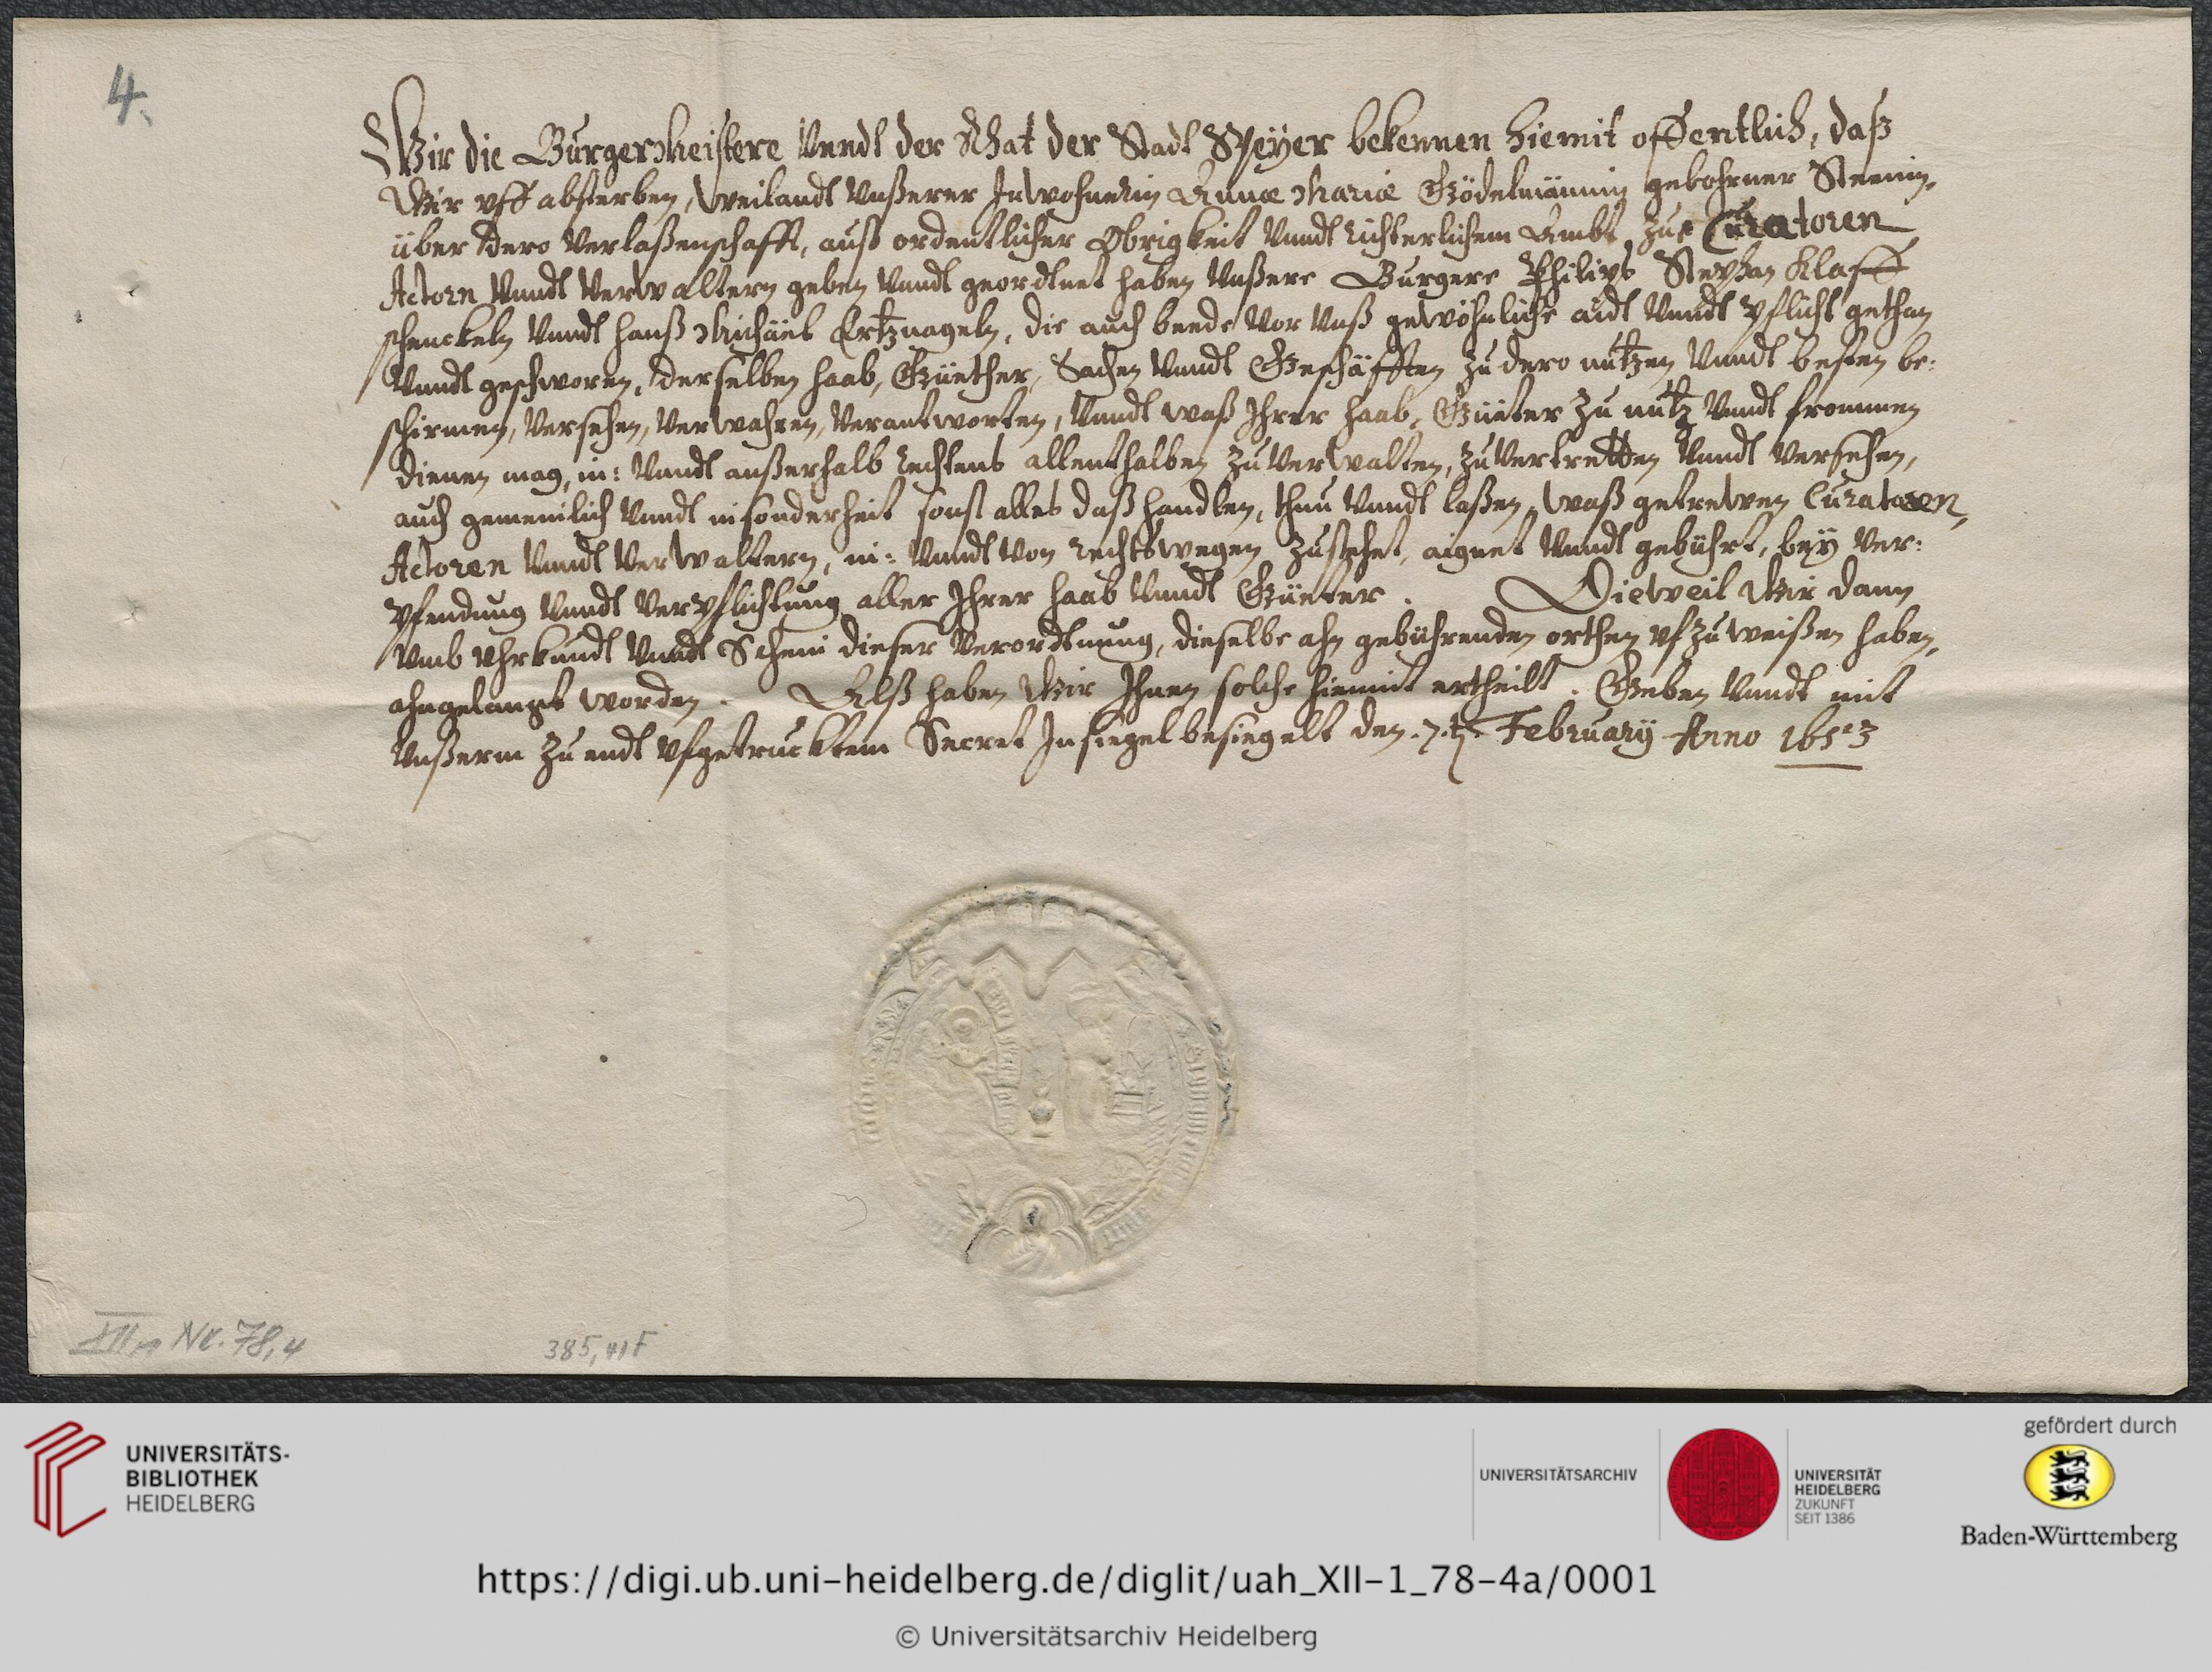 4.
Wir die Burgermeistere Vnndt der Rhat der Stadt Speyer bekennen hiemit offentlich, daß
Wir vff absterben, weilandt Vnßerer Inwohnerin Annæ Mariæ Gödelmännin gebohrner
über dero Verlaßenschafft, auß ordentlicher Obrigkeit Vnndt richterlichem Ambt zue Curatoren
Actorn Vnndt Verwaltern geben Vnndt geordtnet haben Vnßere Burgere Philips Stephan Klaff
schenckeln Vnndt Hanß Michäel Ertznageln, die auch beede Vor Vnß gewöhnliche aidt Vnndt pflicht gethan
Vnndt geschworen, derselben haab, Güether, Sachen Vnndt Geschäfften zu dero nutzen Vnndt besten be:
schirmen, Versehen, Verwahren, Verantworten, Vnndt waß Ihrer haab, Güeter zu nutz Vnndt frommen
dienen mag, in: Vnndt außerhalb rechtens allenthalben zu Verwalten, zu Vertretten Vnndt Versehen,
auch gemeinlich Vnndt insonderheit sonst alles daß handlen, thun Vnndt laßen, waß getrewen Curatoren,
Actoren Vnndt Verwaltern, in: Vnndt Von rechtswegen zustehet, aignet Vnndt gebührt, bey Ver:
pfendung Vnndt Verpflichtung aller Ihrer haab Vnndt Güeter. Dieweil Wir dann
Vmb Vhrkundt Vnndt Schein dieser Verordtnung, dieselbe ahn gebührenden orthen vfzuweißen haben,
ahngelangt worden. Alß haben Wir Ihnen solche hiemit ertheilt. Geben Vnndt mit
Vnßerm zu endt vfgetrucktem Secret Insiegel besiegelt den .7.t. February Anno 1653
Nr. 78,4
385,
UNIVERSITÄTS-
BIBLIOTHEK
HEIDELBERG
UNIVERSITÄTSARCHIV
UNIVERSITÄT
HEIDELBERG
ZUKUNFT
SEIT 1386
gefördert durch
Baden-Württemberg
https://digi.ub.uni-heidelberg.de/diglit/uah_XII-1_78-4a/0001
© Universitätsarchiv Heidelberg